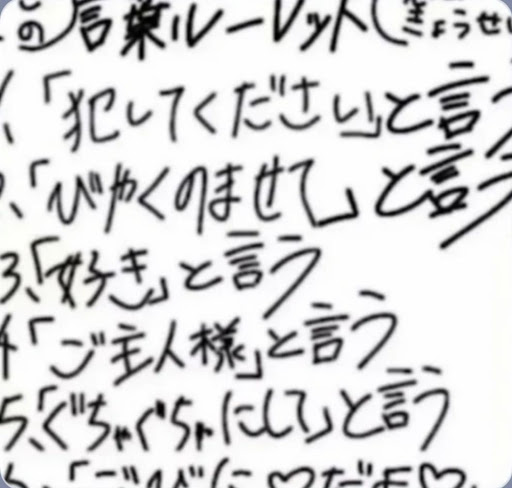 の 言葉ルーレット(きょうせい
、「犯してください」と言う
、「びやくのませて」と言う
3、「好き」と言う
4「ご主人様」と言う
5、「ぐちゃぐちゃにして」と言う